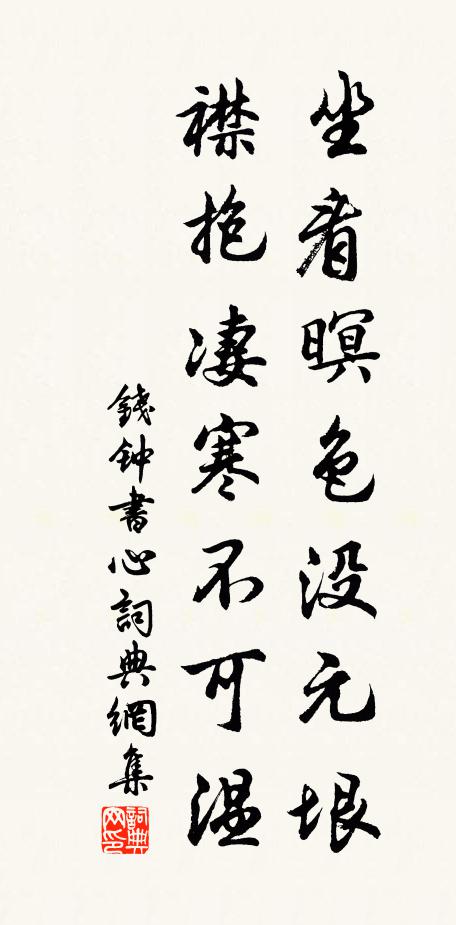 坐看暝色没元垠
襟抱凄寒不可温
錢钟書心詞典網集
詞典网印